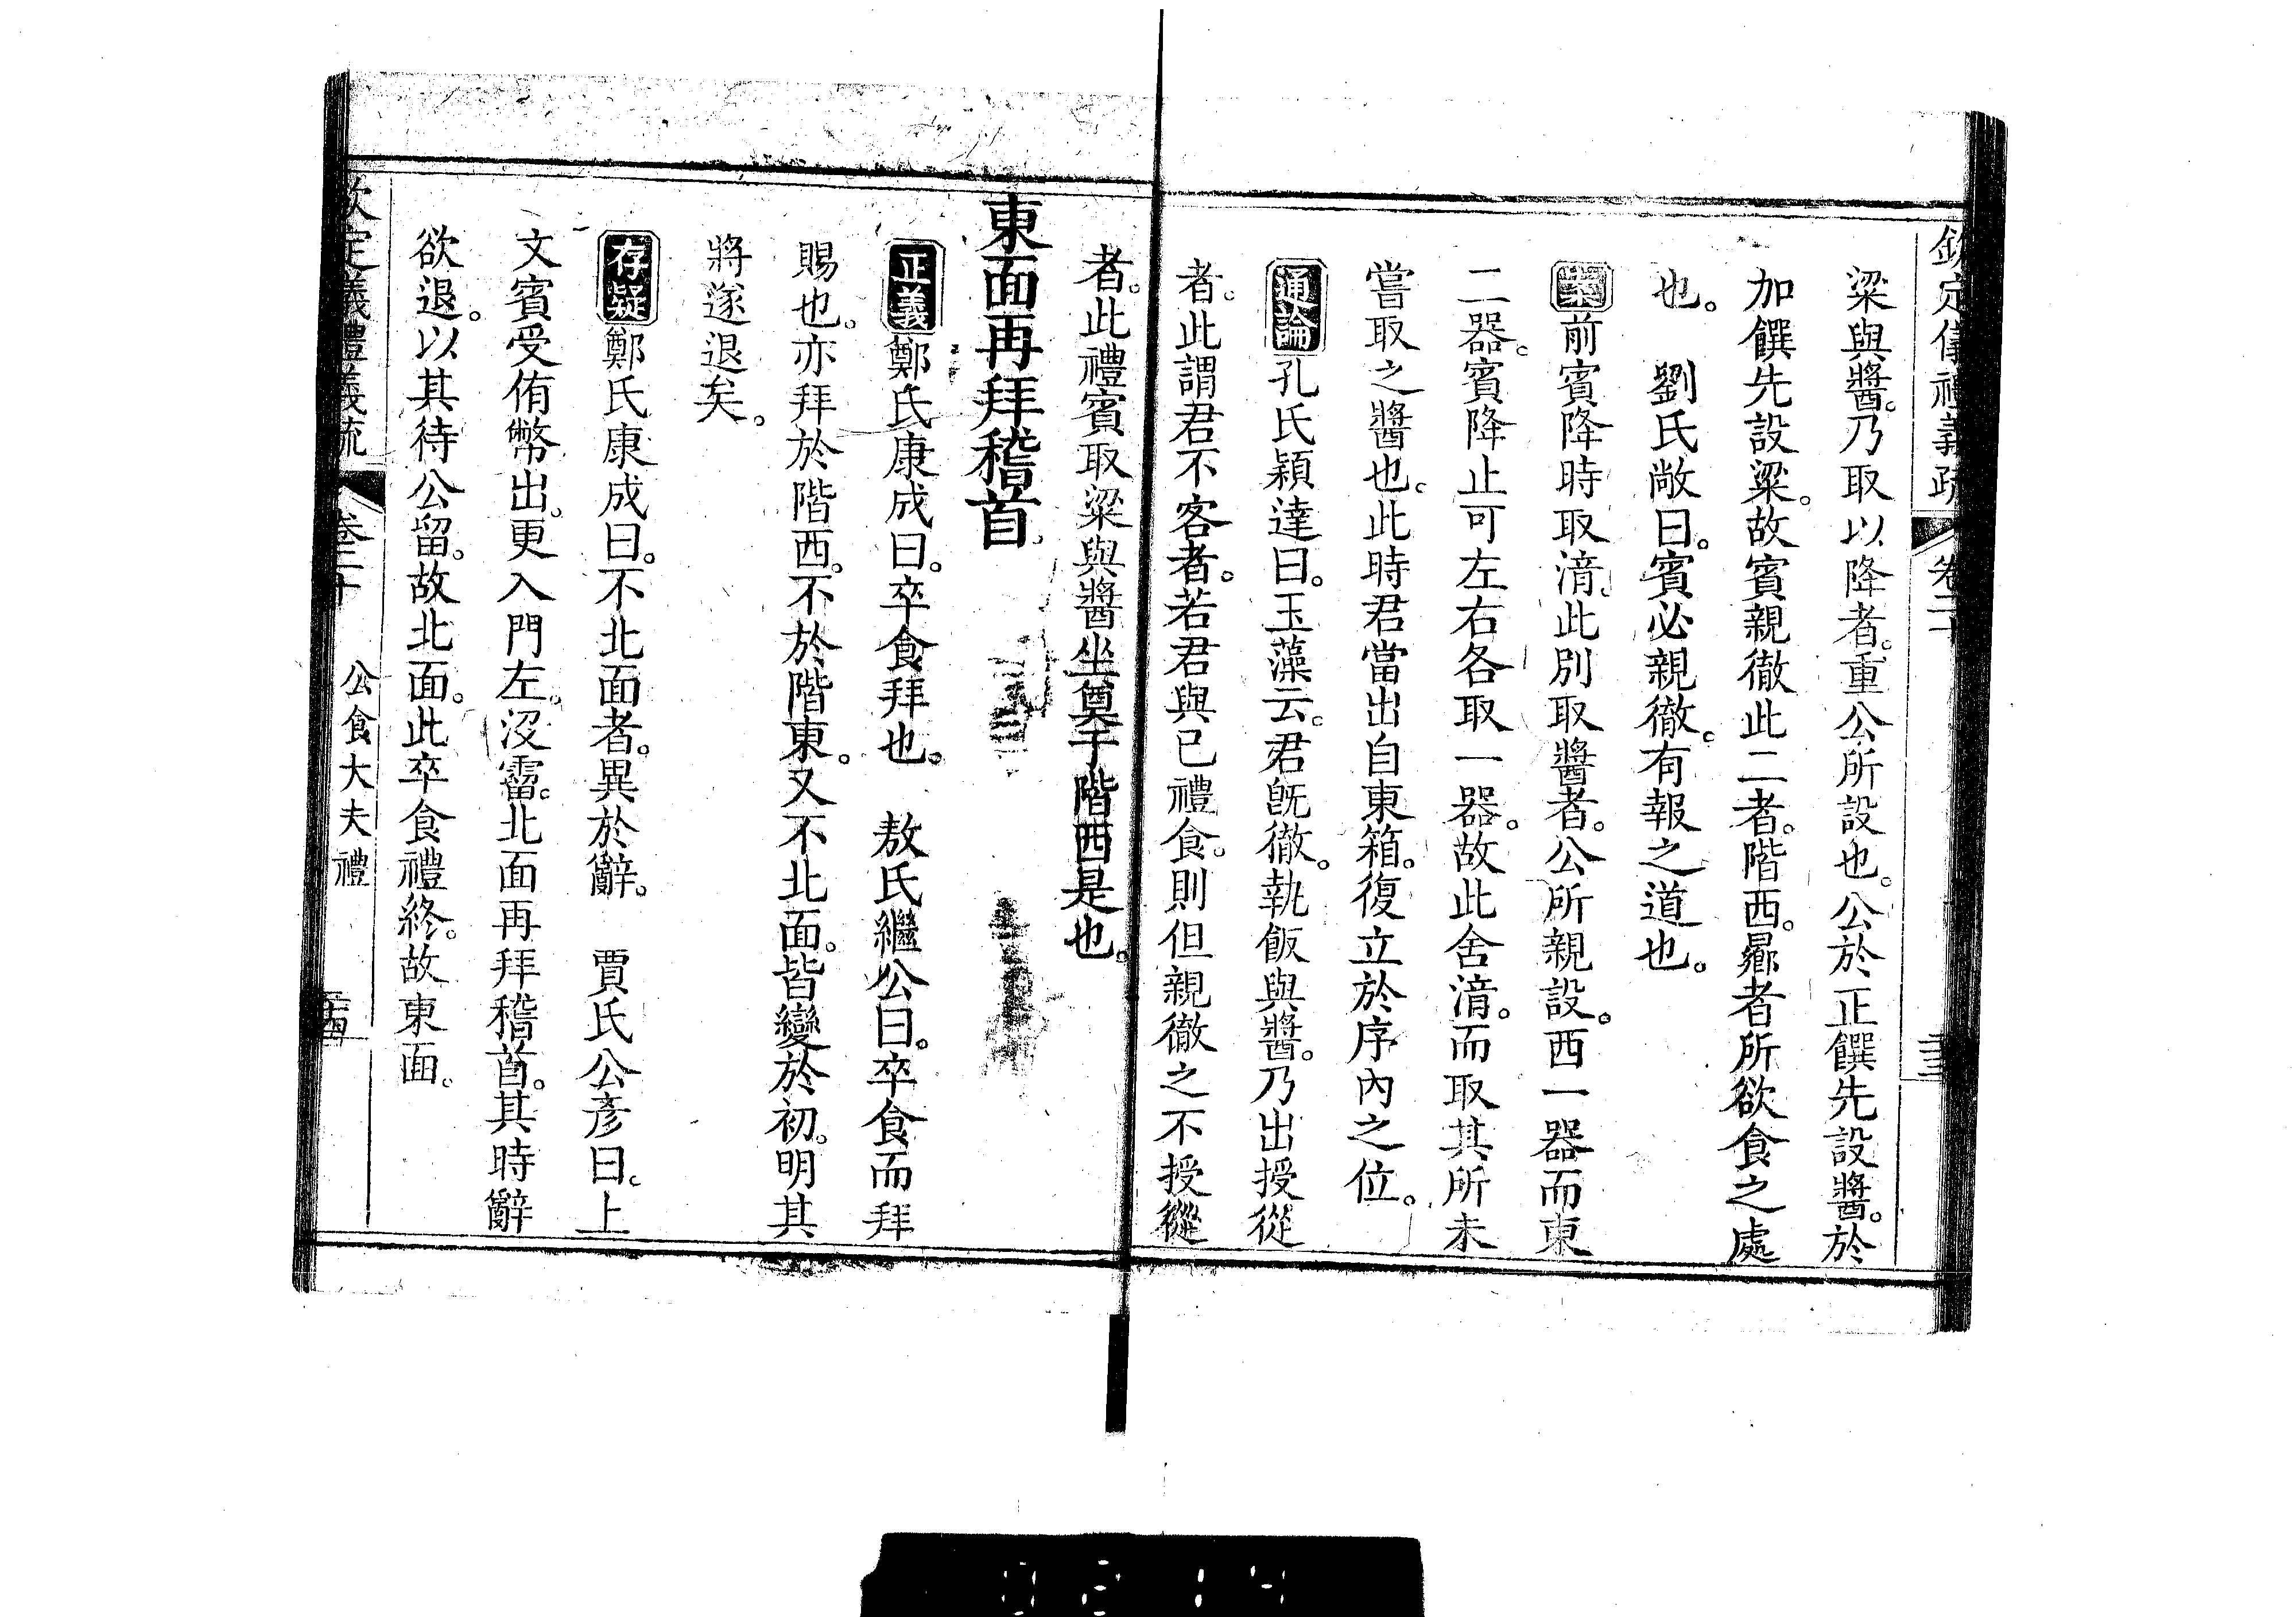 欽定儀禮義疏 卷二十
粱與醬。乃取以降者。重公所設也。公於正饌先設醬。於
加饌先設粱。故賓親徹此二者。階西。曏者所欲食之處
也。 劉氏敞曰。賓必親徹。有報之道也。
案前賓降時取湆。此別取醬者。公所親設。西一器而東
二器。賓降止可左右各取一器。故此舍湆。而取其所未
嘗取之醬也。此時君當出自東箱。復立於序內之位。
通論孔氏穎達曰。玉藻云。君旣徹。執飯與醬。乃出授從
者。此謂君不客者。若君與已禮食。則但親徹之不授從
者。此禮賓取粱與醬坐奠于階西是也。
東面再拜稽首。
正義鄭氏康成曰。卒食拜也。 敖氏繼公曰。卒食而拜
賜也。亦拜於階西。不於階東。又不北面。皆變於初。明其
將遂退矣。
存疑鄭氏康成曰。不北面者。異於辭。 賈氏公彥曰。上
文賓受侑幣出。更入門左。沒霤。北面再拜稽首。其時辭
欲退。以其待公留。故北面。此卒食禮終。故東面。
欽定義禮義疏 卷二十 公食大夫禮